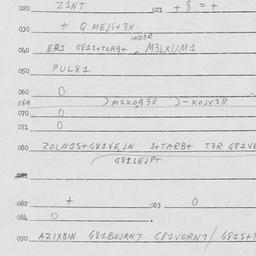 020 Z1NT 021 + 8 = +
030 + Q MEJS+3X
IND3R
040 ER1 G81S+TORB+, M3LXUM1
050 PUL81
060 0
069 ) M1KOR3R ) - KOJV3R
070 0
071 0
080 ZOLN1S+G81VEJN S+TARB+ T3R G81VE
G81LEJPT
082 + 083 0
084 0
090 AZIXBIN G81BOJRN7 G81VORN7 / G81S+T